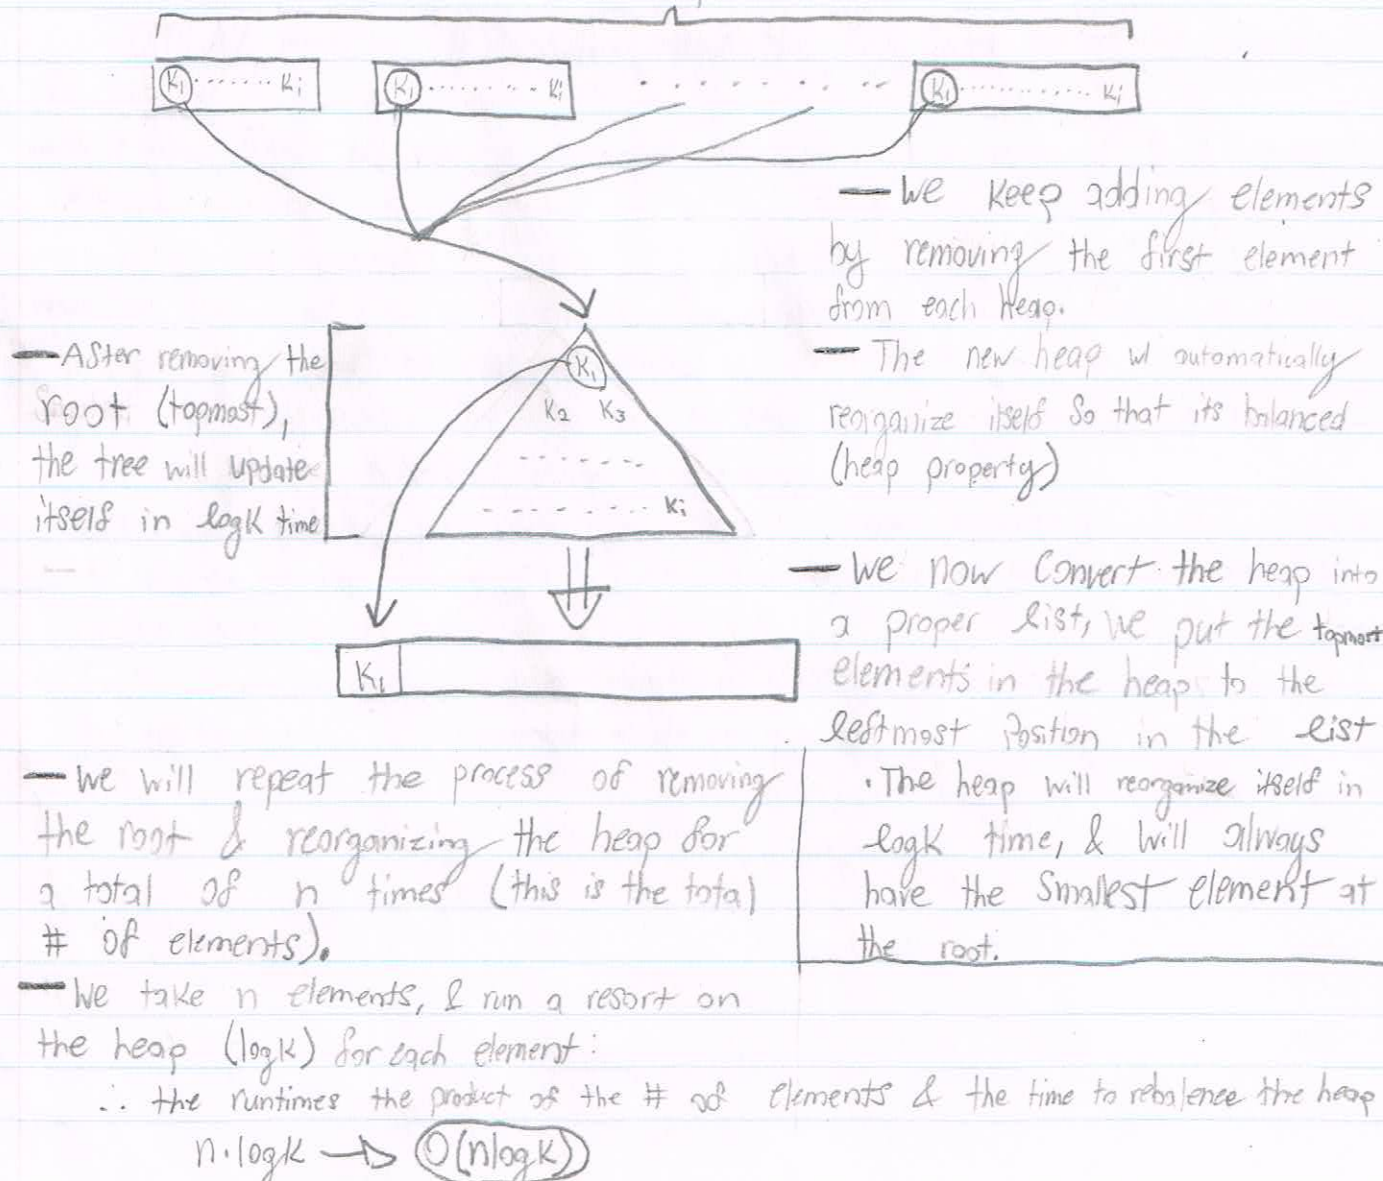 K₁ ....... Kᵢ K₁ ........ Kᵢ . . . . . . . K₁ ........... Kᵢ
— We keep adding elements
by removing the first element
from each Heap.
— The new heap w/ automatically
reorganize itself So that its balanced
(heap property)
— After removing the
root (topmost),
the tree will update
itself in logK time
K₁
K₂ K₃
. . . . . . .
. . . . . . . Kᵢ
K₁
— We now Convert the heap into
a proper list, we put the topmost
elements in the heap to the
leftmost Position in the list
• The heap will reorganize itself in
logK time, & will always
have the Smallest element at
the root.
— We will repeat the process of removing
the root & reorganizing the heap for
a total of n times (this is the total
# of elements).
— We take n elements, & run a resort on
the heap (logK) for each element:
∴ the runtimes the product of the # of elements & the time to rebalence the heap
n·logK → O(nlogK)